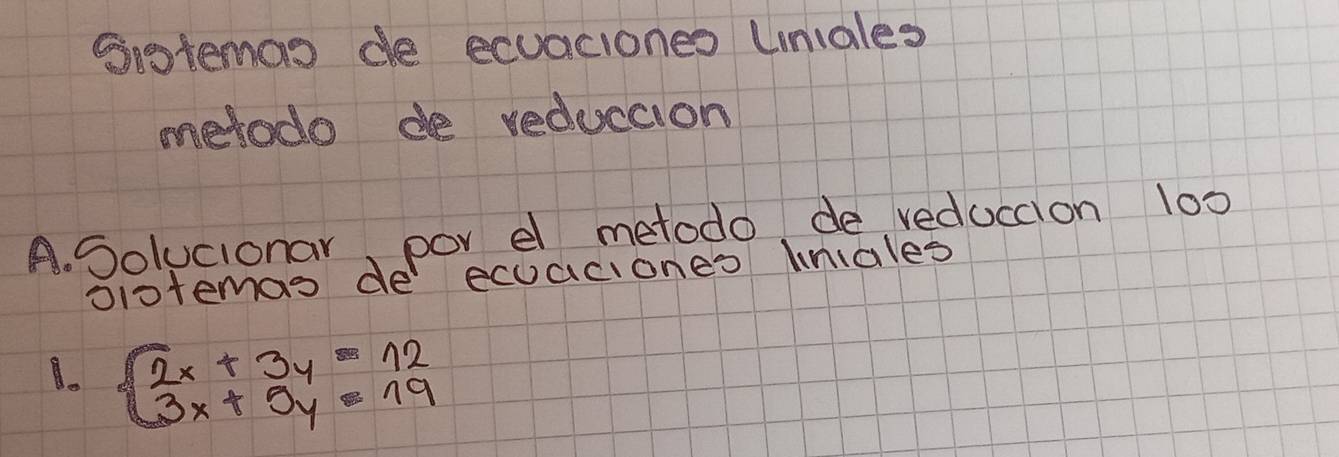 Sistemas de ecuaciones Liniales
metodo de reduccion
A. Solucionar por el metodo de reduccion los
sistemas de ecuaciones liniales
1. { 2x + 3y = 12
3x + 5y = 19